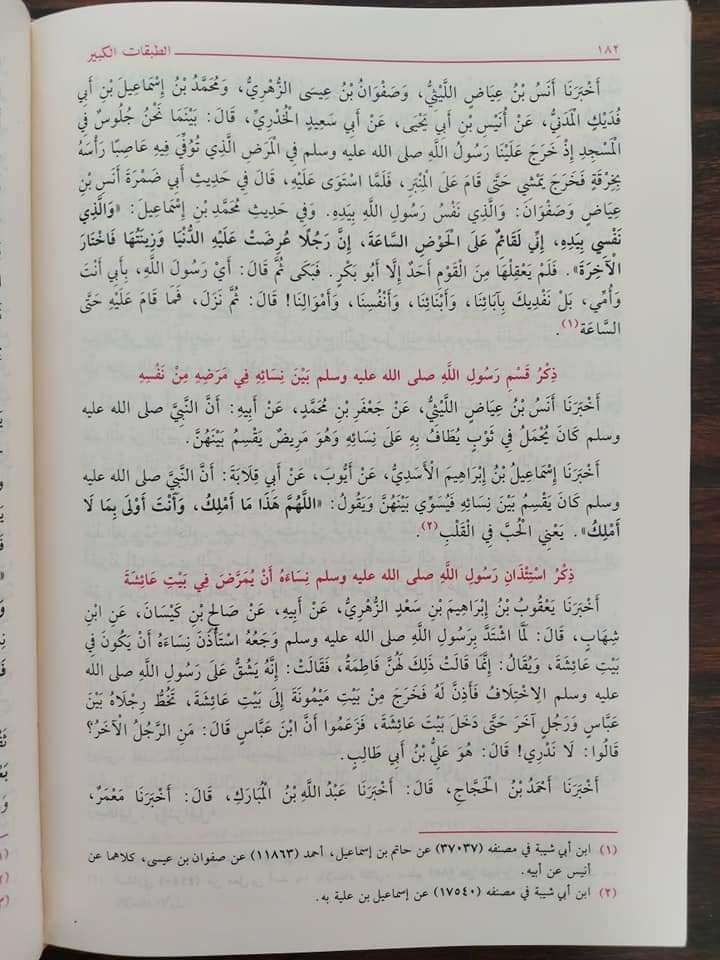 ١٨٢ الطبقات الكبير
أَخْبَرَنَا أَنَسُ بْنُ عِيَاضٍ اللَّيْثِيُّ، وَصَفْوَانُ بْنُ عِيسَى الزُّهْرِيُّ، وَمُحَمَّدُ بْنُ إِسْمَاعِيلَ بْنِ أَبِي
فُدَيْكٍ الْمَدَنِيُّ، عَنْ أُنَيْسِ بْنِ أَبِي يَحْيَى، عَنْ أَبِيهِ، عَنْ أَبِي سَعِيدٍ الْخُدْرِيِّ، قَالَ: بَيْنَمَا نَحْنُ جُلُوسٌ فِي
الْمَسْجِدِ إِذْ خَرَجَ عَلَيْنَا رَسُولُ اللَّهِ صلى الله عليه وسلم فِي الْمَرَضِ الَّذِي تُوُفِّيَ فِيهِ عَاصِبًا رَأْسَهُ
بِخِرْقَةٍ فَخَرَجَ يَمْشِي حَتَّى قَامَ عَلَى الْمِنْبَرِ، فَلَمَّا اسْتَوَى عَلَيْهِ، قَالَ فِي حَدِيثِ أَبِي ضَمْرَةَ أَنَسِ بْنِ
عِيَاضٍ وَصَفْوَانَ: وَالَّذِي نَفْسُ رَسُولِ اللَّهِ بِيَدِهِ. وَفِي حَدِيثِ مُحَمَّدِ بْنِ إِسْمَاعِيلَ: «وَالَّذِي
نَفْسِي بِيَدِهِ، إِنِّي لَقَائِمٌ عَلَى الْحَوْضِ السَّاعَةَ، إِنَّ رَجُلًا عُرِضَتْ عَلَيْهِ الدُّنْيَا وَزِينَتُهَا فَاخْتَارَ
الْآخِرَةَ». فَلَمْ يَعْقِلْهَا مِنَ الْقَوْمِ أَحَدٌ إِلَّا أَبُو بَكْرٍ. فَبَكَى ثُمَّ قَالَ: أَيْ رَسُولَ اللَّهِ، بِأَبِي أَنْتَ
وَأُمِّي، بَلْ نَفْدِيكَ بِآبَائِنَا، وَأَبْنَائِنَا، وَأَنْفُسِنَا، وَأَمْوَالِنَا! قَالَ: ثُمَّ نَزَلَ، فَمَا قَامَ عَلَيْهِ حَتَّى
السَّاعَة(١).
ذِكْرُ قَسْمِ رَسُولِ اللَّهِ صلى الله عليه وسلم بَيْنَ نِسَائِهِ فِي مَرَضِهِ مِنْ نَفْسِهِ
أَخْبَرَنَا أَنَسُ بْنُ عِيَاضٍ اللَّيْثِيُّ، عَنْ جَعْفَرِ بْنِ مُحَمَّدٍ، عَنْ أَبِيهِ: أَنَّ النَّبِيَّ صلى الله عليه
وسلم كَانَ يُحْمَلُ فِي ثَوْبٍ يُطَافُ بِهِ عَلَى نِسَائِهِ وَهُوَ مَرِيضٌ يَقْسِمُ بَيْنَهُنَّ.
أَخْبَرَنَا إِسْمَاعِيلُ بْنُ إِبْرَاهِيمَ الْأَسَدِيُّ، عَنْ أَيُّوبَ، عَنْ أَبِي قِلَابَةَ: أَنَّ النَّبِيَّ صلى الله عليه
وسلم كَانَ يَقْسِمُ بَيْنَ نِسَائِهِ فَيُسَوِّي بَيْنَهُنَّ وَيَقُولُ: «اللَّهُمَّ هَذَا مَا أَمْلِكُ، وَأَنْتَ أَوْلَى بِمَا لَا
أَمْلِكُ». يَعْنِي الْحُبَّ فِي الْقَلْبِ(٢).
ذِكْرُ اسْتِئْذَانِ رَسُولِ اللَّهِ صلى الله عليه وسلم نِسَاءَهُ أَنْ يُمَرَّضَ فِي بَيْتِ عَائِشَةَ
أَخْبَرَنَا يَعْقُوبُ بْنُ إِبْرَاهِيمَ بْنِ سَعْدٍ الزُّهْرِيُّ، عَنْ أَبِيهِ، عَنْ صَالِحِ بْنِ كَيْسَانَ، عَنِ ابْنِ
شِهَابٍ، قَالَ: لَمَّا اشْتَدَّ بِرَسُولِ اللَّهِ صلى الله عليه وسلم وَجَعُهُ اسْتَأْذَنَ نِسَاءَهُ أَنْ يَكُونَ فِي
بَيْتِ عَائِشَةَ، وَيُقَالُ: إِنَّمَا قَالَتْ ذَلِكَ لَهُنَّ فَاطِمَةُ، فَقَالَتْ: إِنَّهُ يَشُقُّ عَلَى رَسُولِ اللَّهِ صلى الله
عليه وسلم الِاخْتِلَافُ فَأَذِنَّ لَهُ فَخَرَجَ مِنْ بَيْتِ مَيْمُونَةَ إِلَى بَيْتِ عَائِشَةَ، تَخُطُّ رِجْلَاهُ بَيْنَ
عَبَّاسٍ وَرَجُلٍ آخَرَ حَتَّى دَخَلَ بَيْتَ عَائِشَةَ، فَزَعَمُوا أَنَّ ابْنَ عَبَّاسٍ قَالَ: مَنِ الرَّجُلُ الْآخَرُ؟
قَالُوا: لَا نَدْرِي! قَالَ: هُوَ عَلِيُّ بْنُ أَبِي طَالِبٍ.
أَخْبَرَنَا أَحْمَدُ بْنُ الْحَجَّاجِ، قَالَ: أَخْبَرَنَا عَبْدُ اللَّهِ بْنُ الْمُبَارَكِ، قَالَ: أَخْبَرَنَا مَعْمَرٌ،
(١) ابن أبي شيبة في مصنفه (٣٧٠٣٧) عن حاتم بن إسماعيل، أحمد (١١٨٦٣) عن صفوان بن عيسى، كلاهما عن
أنيس عن أبيه.
(٢) ابن أبي شيبة في مصنفه (١٧٥٤٠) عن إسماعيل بن علية به.